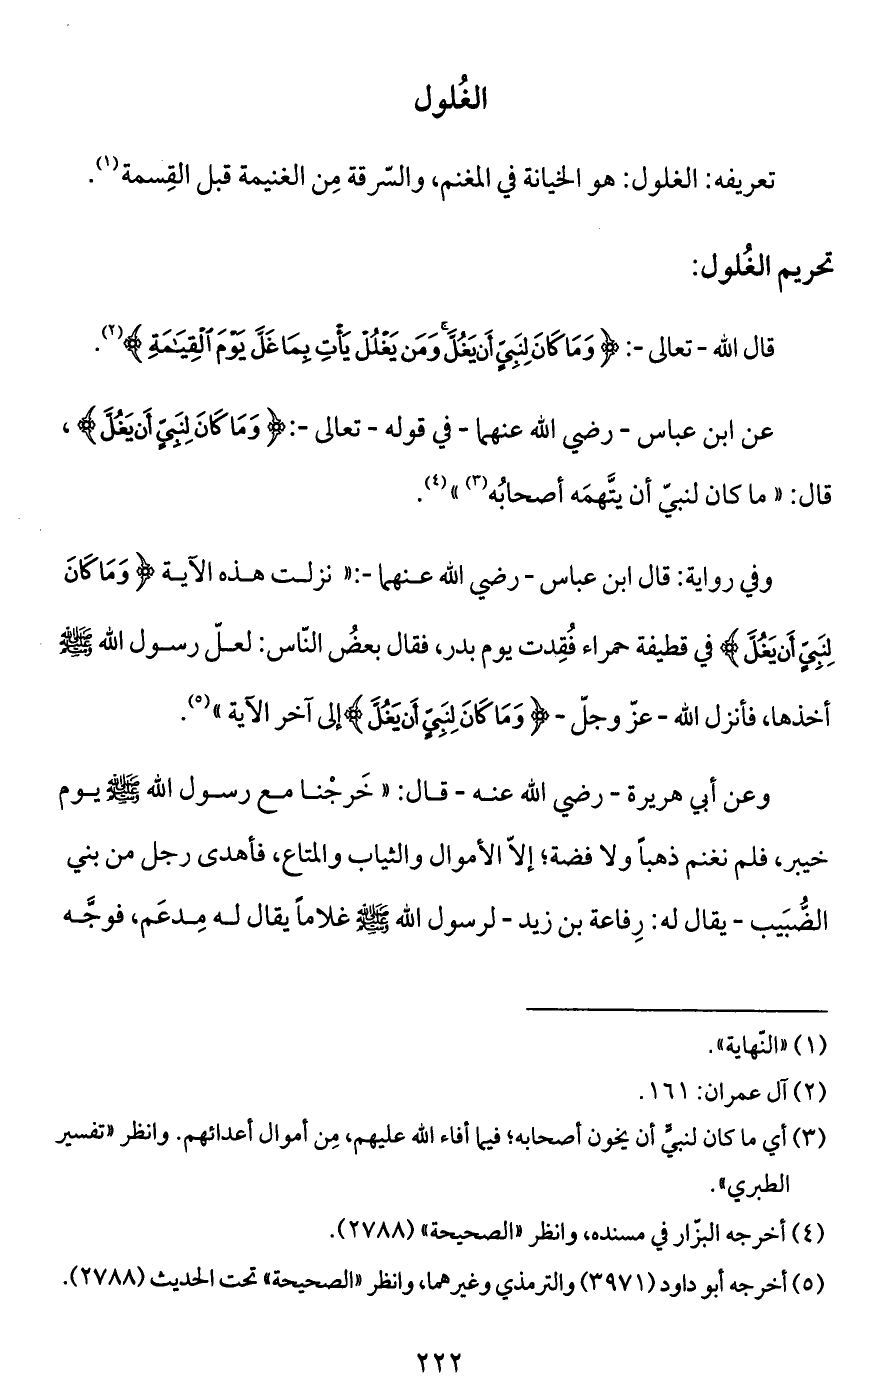 الغُلول
تعريفه: الغلول: هو الخيانة في المغنم، والسّرقة مِن الغنيمة قبل القِسمة(١).
تحريم الغُلول:
قال الله - تعالى -: ﴿ وَمَا كَانَ لِنَبِيٍّ أَن يَغُلَّ ۚ وَمَن يَغْلُلْ يَأْتِ بِمَا غَلَّ يَوْمَ ٱلْقِيَـٰمَةِ ﴾(٢).
عن ابن عباس - رضي الله عنهما - في قوله - تعالى -: ﴿ وَمَا كَانَ لِنَبِيٍّ أَن يَغُلَّ ﴾ ،
قال: « ما كان لنبيّ أن يتَّهمَه أصحابُه(٣) »(٤).
وفي رواية: قال ابن عباس - رضي الله عنهما -: « نزلت هذه الآية ﴿ وَمَا كَانَ
لِنَبِيٍّ أَن يَغُلَّ ﴾ في قطيفة حمراء فُقِدت يوم بدر، فقال بعضُ النّاس: لعلّ رسول الله ﷺ
أخذها، فأنزل الله - عزّ وجلّ - ﴿ وَمَا كَانَ لِنَبِيٍّ أَن يَغُلَّ ﴾ إلى آخر الآية »(٥).
وعن أبي هريرة - رضي الله عنه - قال: « خَرجْنا مع رسول الله ﷺ يوم
خيبر، فلم نغنم ذهباً ولا فضة؛ إلاّ الأموال والثياب والمتاع، فأهدى رجل من بني
الضُّبَيب - يقال له: رِفاعة بن زيد - لرسول الله ﷺ غلاماً يقال له مِدعَم، فوجَّه
(١) «النّهاية».
(٢) آل عمران: ١٦١.
(٣) أي ما كان لنبيٍّ أن يخون أصحابه؛ فيما أفاء الله عليهم، مِن أموال أعدائهم. وانظر «تفسير
الطبري».
(٤) أخرجه البزّار في مسنده، وانظر «الصحيحة» (٢٧٨٨).
(٥) أخرجه أبو داود (٣٩٧١) والترمذي وغيرهما، وانظر «الصحيحة» تحت الحديث (٢٧٨٨).
٢٢٢